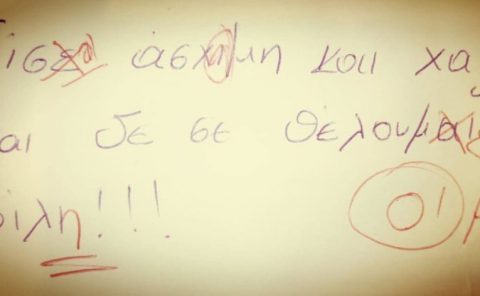 ίσε άσχημη και χα
αι δε σε θέλουμαι
ίλη!!!